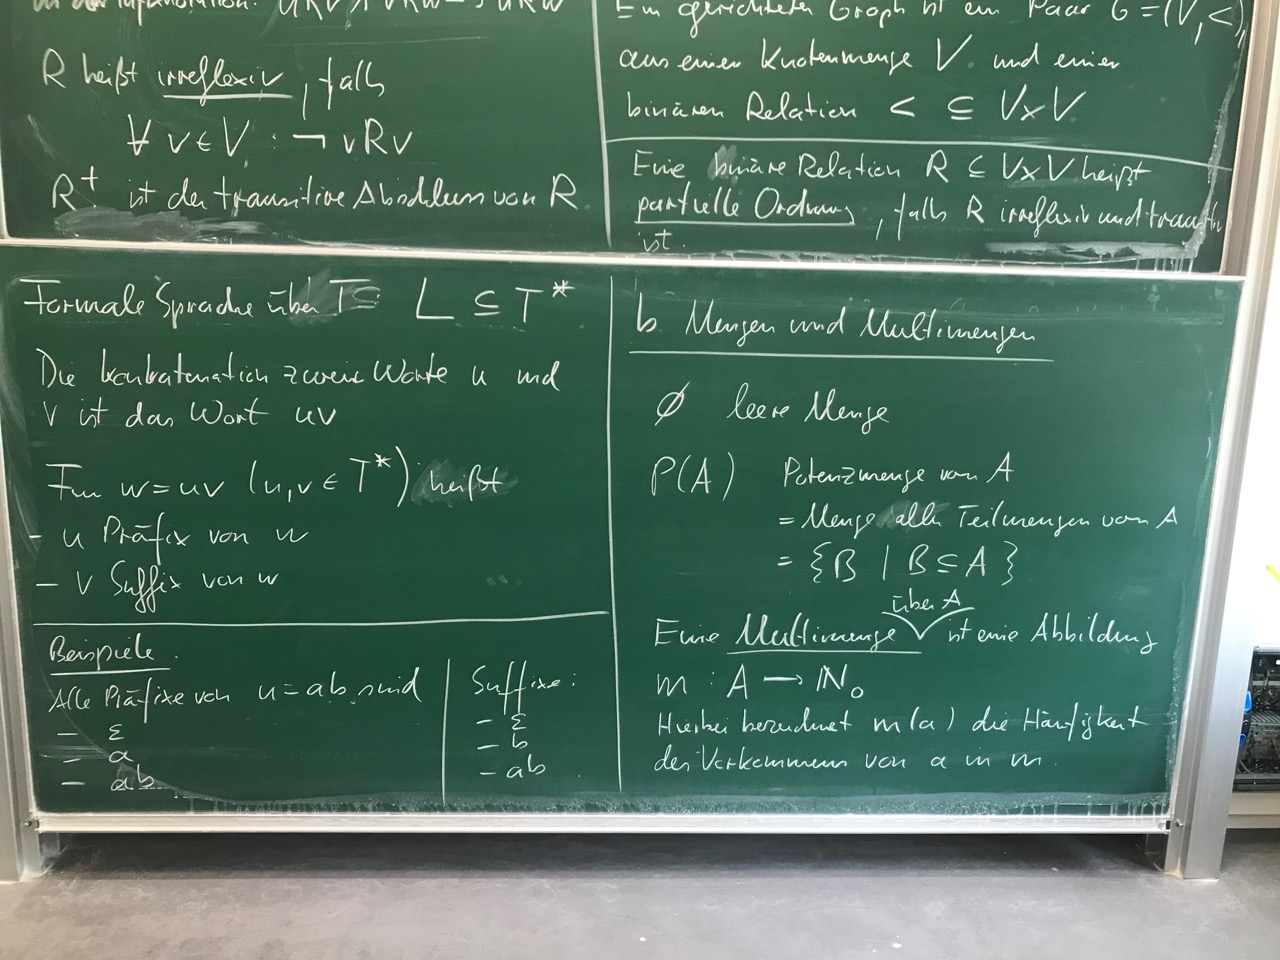 in der Infixnotation: uRv ∧ vRw → uRw
R heißt irreflexiv, falls
∀ v ∈ V : ¬ vRv
R⁺ ist der transitive Abschluss von R
Ein gerichteter Graph ist ein Paar G = (V, <),
aus einer Knotenmenge V und einer
binären Relation < ⊆ V×V
Eine binäre Relation R ⊆ V×V heißt
partielle Ordnung, falls R irreflexiv und transitiv
ist.
Formale Sprache über T: L ⊆ T*
Die Konkatenation zweier Worte u und
v ist das Wort uv
Für w = uv (u,v ∈ T*) heißt
- u Präfix von w
- v Suffix von w
Beispiele.
Alle Präfixe von u = ab sind
- ε
- a
- ab
Suffixe:
- ε
- b
- ab
b. Mengen und Multimengen
∅ leere Menge
P(A) Potenzmenge von A
= Menge aller Teilmengen von A
= {B | B ⊆ A}
über A
Eine Multimenge ist eine Abbildung
m : A → ℕ₀
Hierbei bezeichnet m(a) die Häufigkeit
des Vorkommens von a in m.